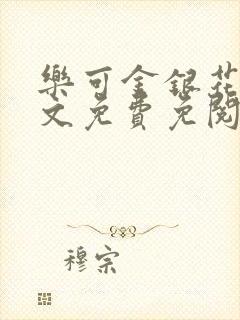 樂可金銀花
文免費免閱
穆宗